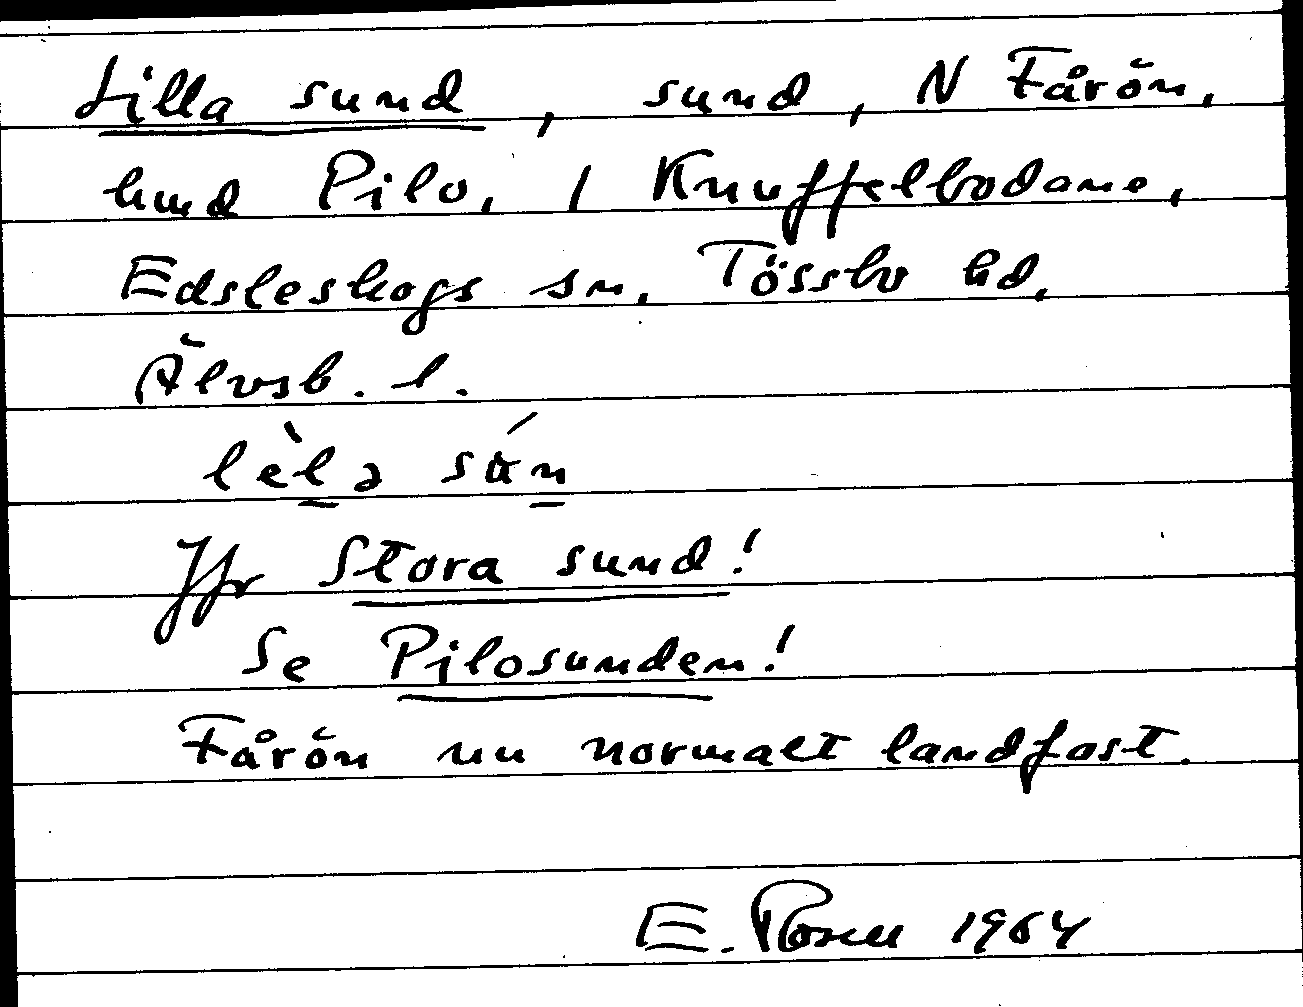 Lilla sund, sund, N Fårön,
hmd Pilo, / Knuffelbodane,
Edsleskogs sn, Tössbo hd,
Älvsb. l.
lὲla sán
Jfr Stora sund!
Se Pilosunden!
Fårön nu normalt landfast.
E. Rosell 1964